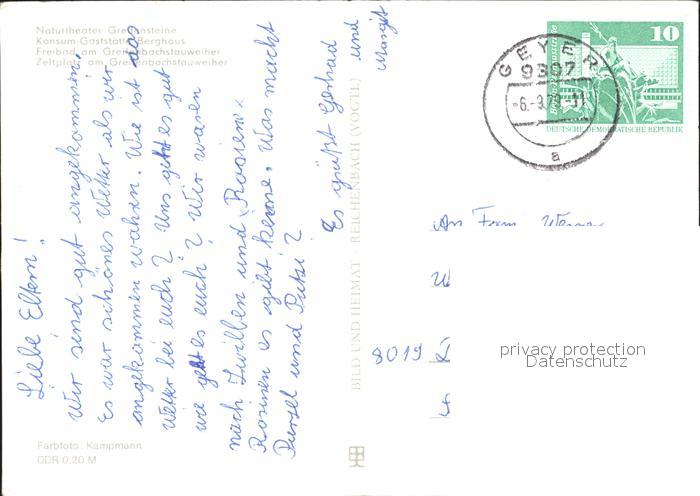 Naturtheater Greifensteine
Konsum-Gaststätte Berghaus
Freibad am Greifenbachstauweiher
Zeltplatz am Greifenbachstauweiher
Liebe Eltern!
Wir sind gut angekommen.
Es war schönes Wetter als wir
angekommen wahren. Wie ist das
Wetter bei euch? Uns geht es gut
wie geht es euch? Wir waren
nach Zwilben und Rosinen
Rosinen es gibt keene. Was macht
Pursel und Putzi?
Es grüßt Gerhad
und
Margit
Farbfoto: Kampmann
DDR 0,20 M
BILD UND HEIMAT REICHENBACH (VOGTL)
10
DEUTSCHE DEMOKRATISCHE REPUBLIK
GEYER
9307
-6.-9.79-11
a
An Fam Werner
W
8019
privacy protection
Datenschutz